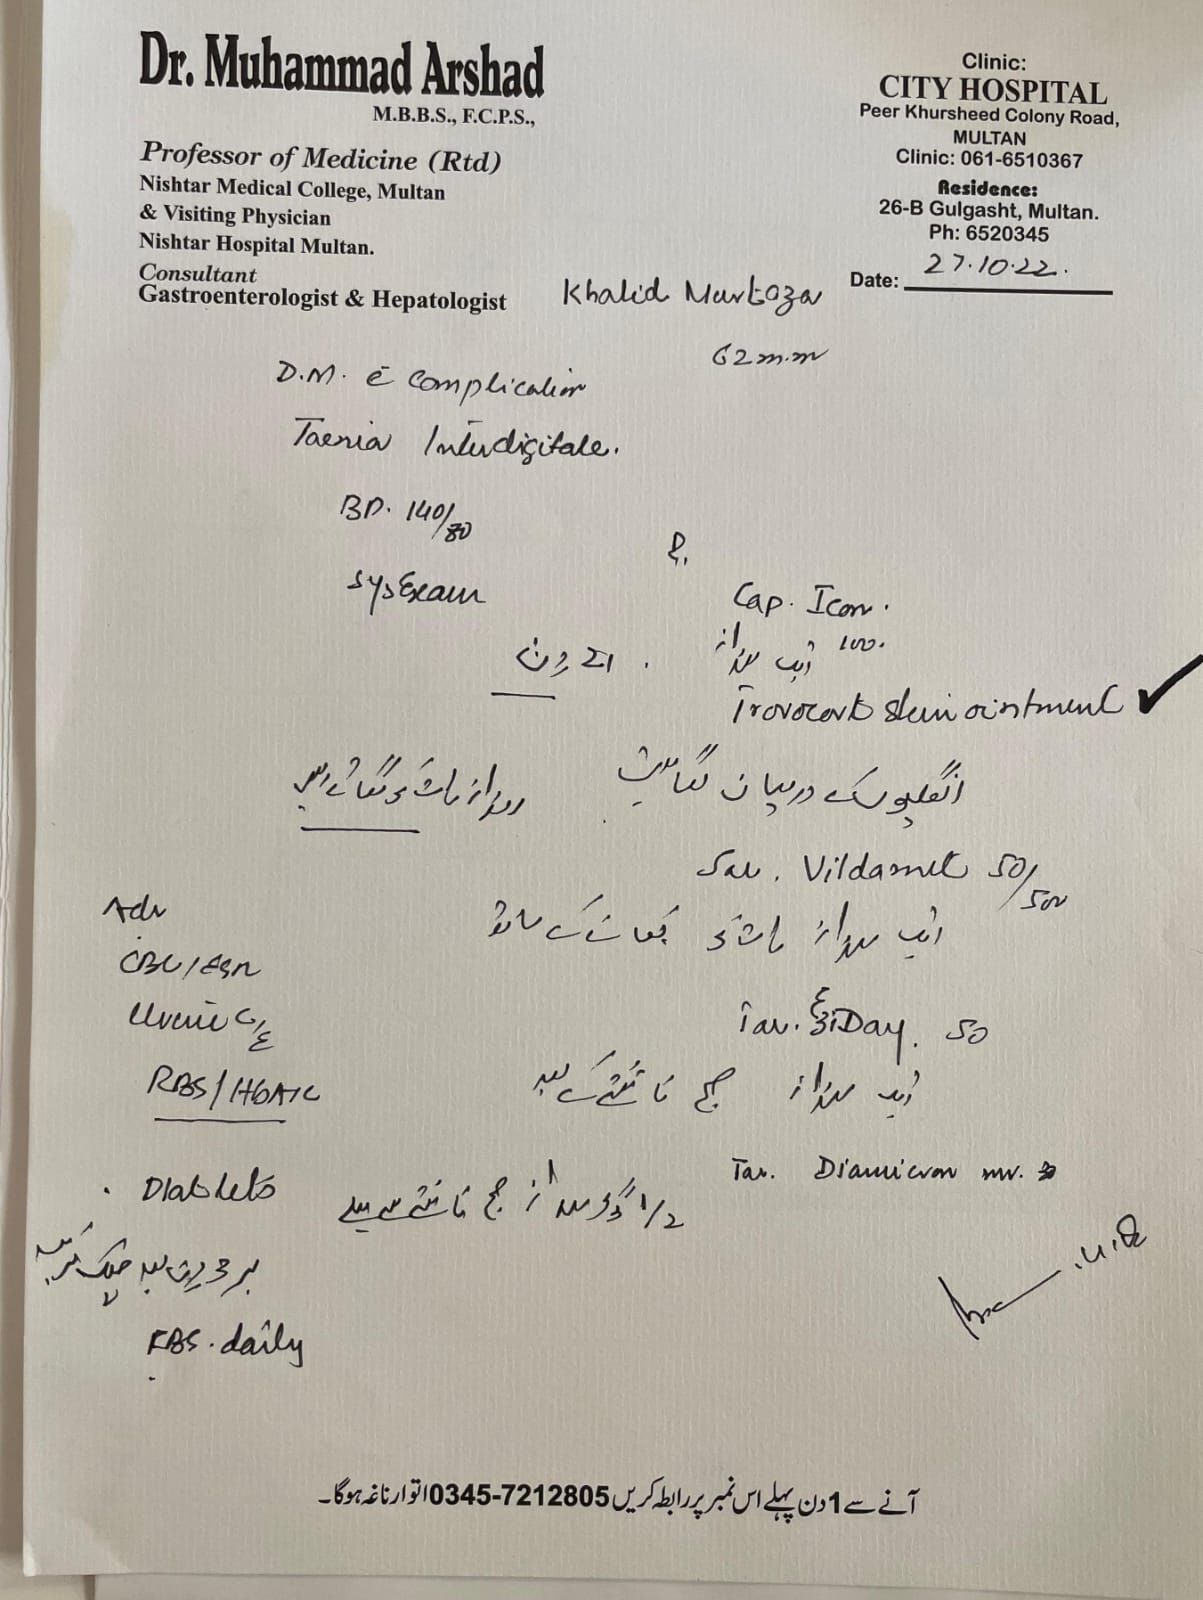 Dr. Muhammad Arshad
M.B.B.S., F.C.P.S.,
Professor of Medicine (Rtd)
Nishtar Medical College, Multan
& Visiting Physician
Nishtar Hospital Multan.
Consultant
Gastroenterologist & Hepatologist
Clinic:
CITY HOSPITAL
Peer Khursheed Colony Road,
MULTAN
Clinic: 061-6510367
Residence:
26-B Gulgasht, Multan.
Ph: 6520345
Date: 27.10.22.
Khalid Murtaza
62
D.M. c̄ Complication
Taenia Interdigitale.
BP. 140/80
Sys Exam
Cap. Icon.
100.
ایک روزانہ
دن
skin ointment
انگلیوں کے درمیان لگائیں
روزانہ
Vildamet 50/500
ایک روزانہ کھانے کے ساتھ
Day. 50
ایک روزانہ صبح ناشتے کے بعد
Diamicron MR.
1/2 گولی روزانہ صبح ناشتے سے پہلے
Adv
CBC/ESR
Urine C/E
RBS/HbA1C
چیک کریں
FBS. daily
آنے سے 1 دن پہلے اس نمبر پر رابطہ کریں 0345-7212805 اتوار ناغہ ہوگا۔